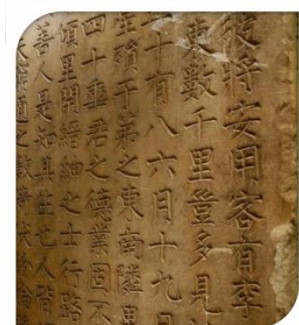 彼將安用客有李
東數千里豈多見
十有八六月十九日
殯于弟之東南隧
四十垂君之德業固不
頌里閈縉紳之士行路
善人是知其生也人皆